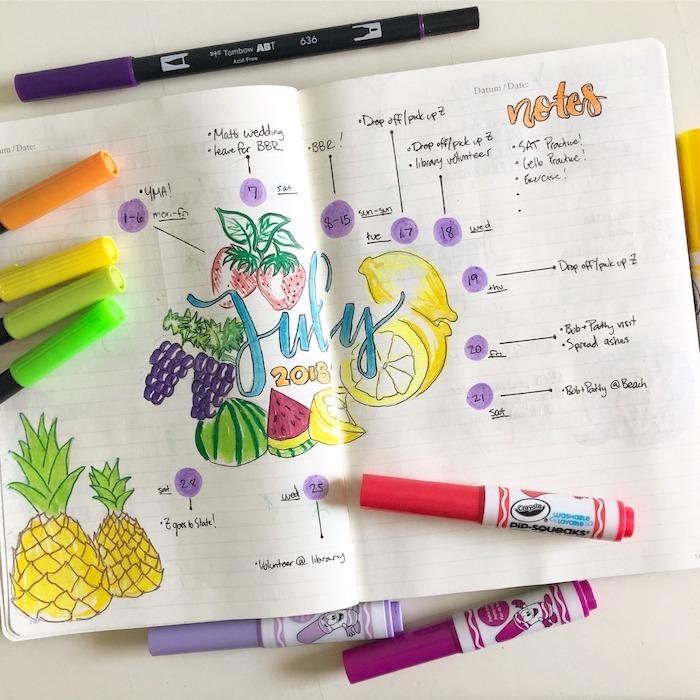 Tombow ABT 636
Acid Free
um / Date:
Datum / Date:
notes
• SAT Practice!
• Exercise!
• Matt's wedding
• leave for BBR
7 sat
• BBR!
8-15 sun-sun
• Drop off/pick up Z
tue 17
• Drop off/pick up Z
• library volunteer
18 wed
• YMA!
1-6 mon-fri
19 thu
Drop off/pick up Z
July
2018
20 fri
• Bob + Patty visit
• Spread ashes
21 sat
• Bob + Patty @ Beach
sat 28
• Z goes to State!
wed 25
• Volunteer @ library
Crayola
WASHABLE
PiP-SQUEAKS